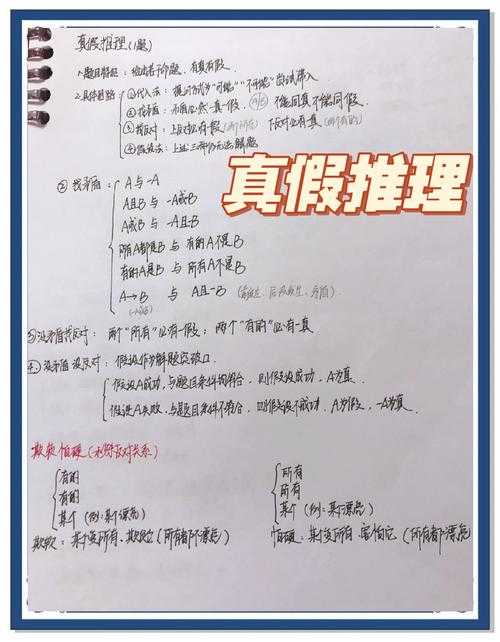 真假推理(1题)
1.题目特征：给出若干命题，有真有假.
2.具体思路 ①代入法：提问方式为"可能""不可能"尝试带入
②找矛盾：不同必然一真一假. 不能同真不能同假.
③找反对：上反对必有一假(两个所有) 下反对必有真(两个有的)
④假设法：上述三种仍无法解题
真假推理
② 找矛盾： A与-A
A且B 与 -A或-B
A或B 与 -A且-B
所有A都是B 与 有的A不是B
有的A是B 与 所有A不是B
A→B 与 A且-B
③没矛盾找反对：两个"所有"必有一假；两个"有的"必有一真
④.没矛盾 没反对：假设作为解题突破口.
假设A成功，与题目条件均符合，则假设成功，A为真.
假设A失败，与题目条件不符合，则假设不成功，A为假，-A为真.
欺软怕硬(利用反对关系)
有的
有的
某个(例：某个漂亮)
欺软：某个变所有，欺负它(所有都不漂亮)
所有
所有
某个(例：某个漂亮)
怕硬：某变所有，害怕它(所有都漂亮)